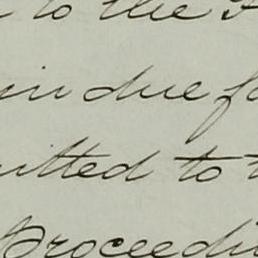 to the
in due fo
itted to t
Proceedin